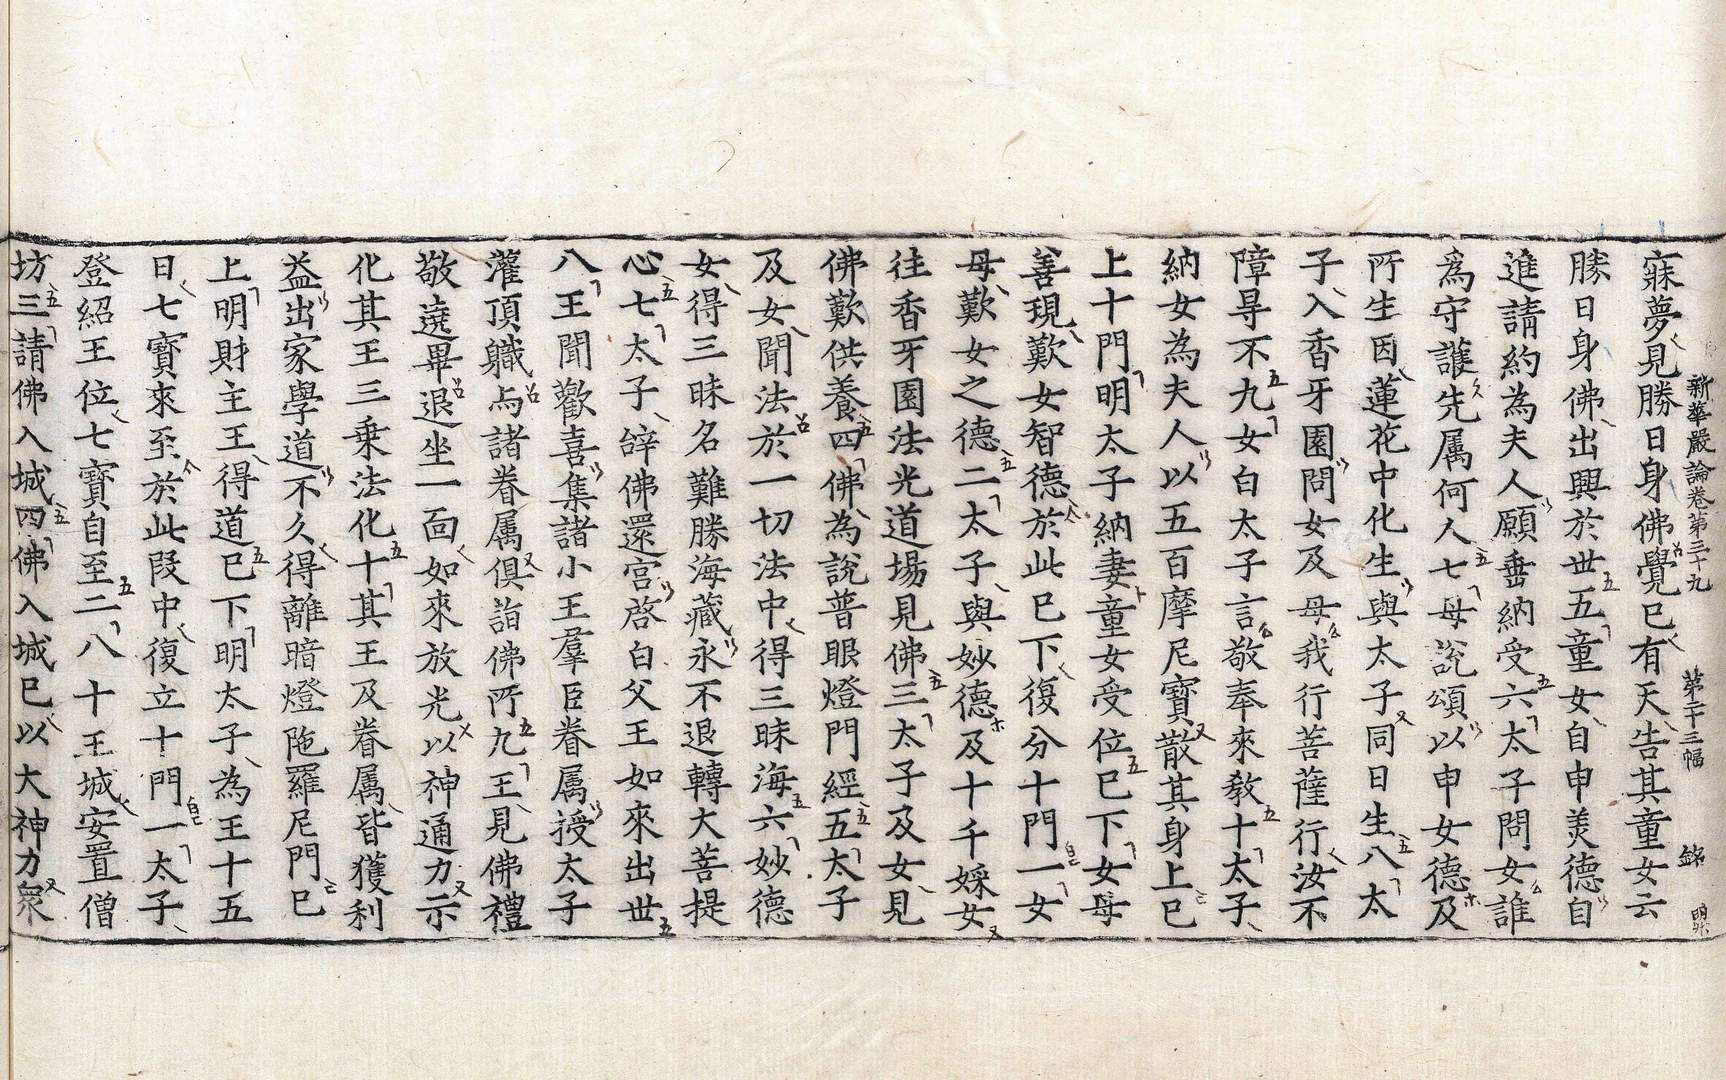 新華嚴論卷第三十九 第十三幅 銘 明昇
寐夢見勝日身佛覺已有天告其童女云
勝日身佛出興於世五童女自申羙德自
進請約為夫人願垂納受六太子問女誰
為守護先属何人七母說頌以申女德及
所生因蓮花中化生與太子同日生八太
子入香牙園問女及母我行菩薩行汝不
障㝵不九女白太子言敬奉來教十太子
納女為夫人以五百摩尼寶散其身上已
上十門明太子納妻童女受位已下女母
善現歎女智德於此已下復分十門一女
母歎女之德二太子與妙德及十千婇女
往香牙園法光道場見佛三太子及女見
佛歎供養四佛為說普眼燈門經五太子
及女聞法於一切法中得三昧海六妙德
女得三昧名難勝海藏永不退轉大菩提
心七太子辝佛還宮啓白父王如來出世
八王聞歡喜集諸小王羣臣眷属授太子
灌頂職与諸眷属俱詣佛所九王見佛禮
敬遶畢退坐一面如來放光以神通力示
化其王三乗法化十其王及眷属皆獲利
益出家學道不久得離暗燈陁羅尼門已
上明財主王得道已下明太子為王十五
日七寶來至於此叚中復立十門一太子
登紹王位七寶自至二八十王城安置僧
坊三請佛入城四佛入城已以大神力衆